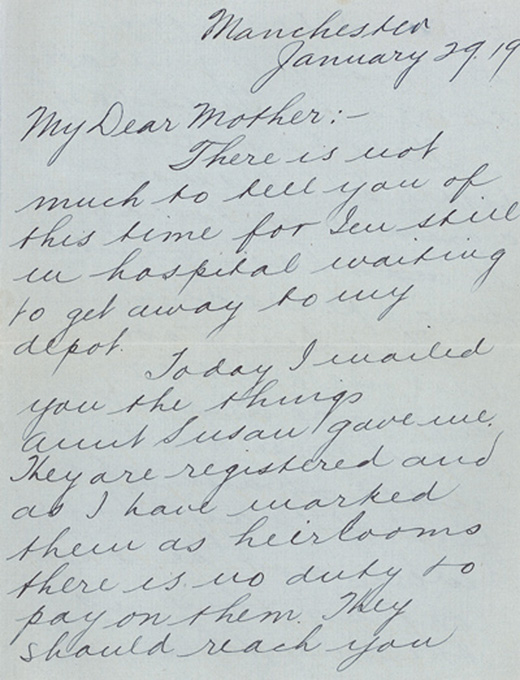 Manchester
January 29. 19
My Dear Mother:-
There is not
much to tell you of
this time for I'm still
in hospital waiting
to get away to my
depot.
Today I mailed
you the things
aunt Susan gave me.
They are registered and
as I have marked
them as heirlooms
there is no duty to
pay on them. They
should reach you